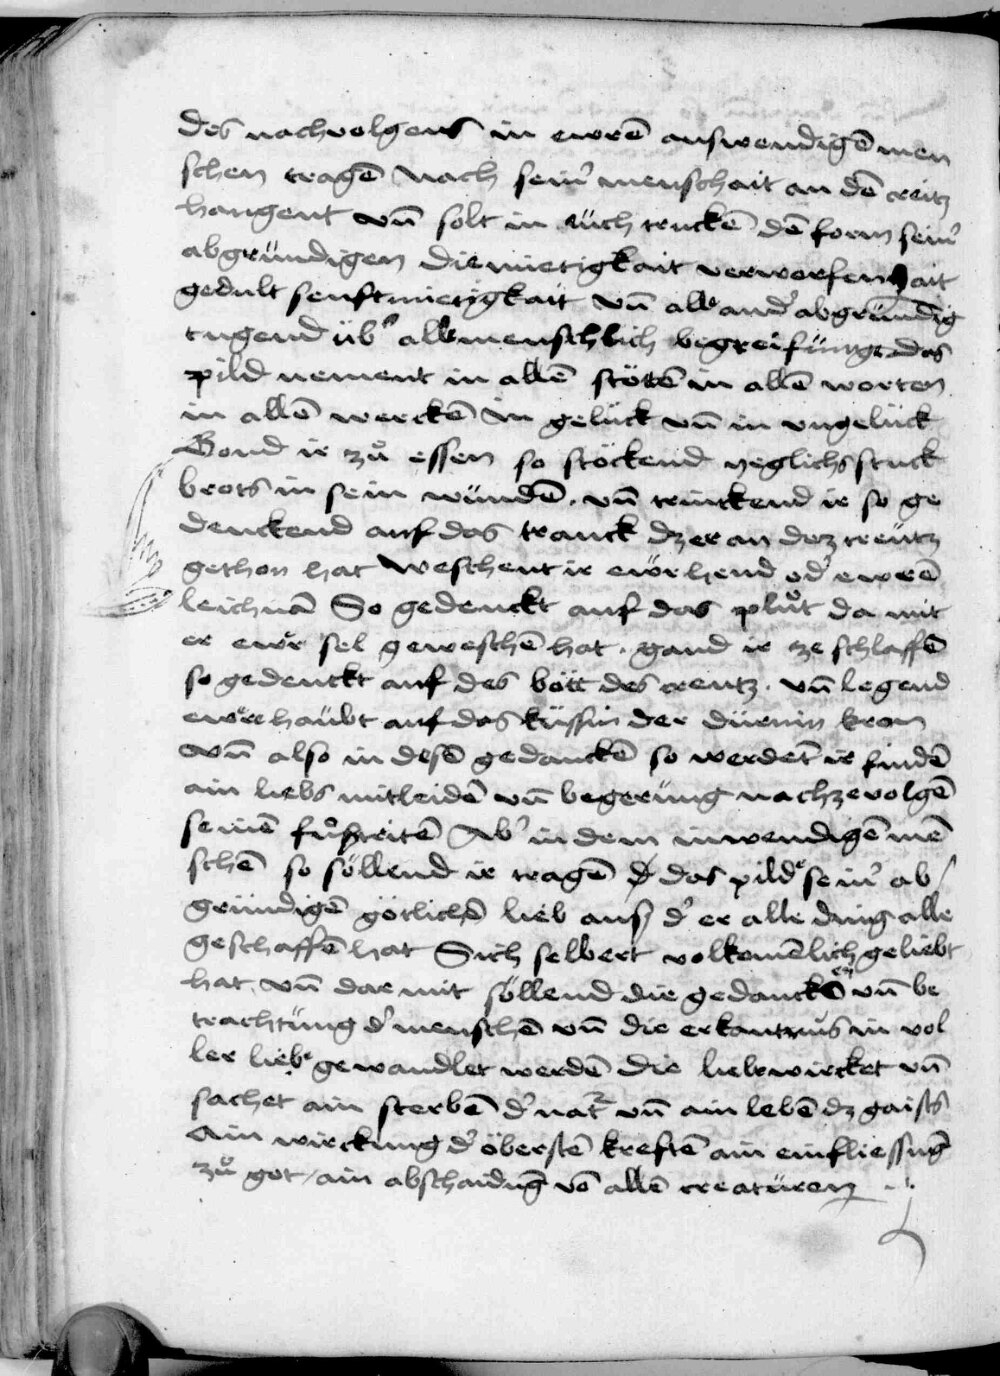 des nachvolgens in ewrē auswendigē men
schen tragē Nach sein' menschait an dē creitz
hangent vn̄ solt in üch truckē dē form sein'
abgründigen diemietigkait verworfenhait
gedult senftmietigkait vn̄ alle and' abgründig
tugend üb' alle menschlich begreifunge das
pild nement in allē stöttē in allē worten
in allē werckē in gelück vn̄ in vngelück
Gond ir zů essen so stöckend yeglichs stuck
brots in sein wundē. vn̄ trinckend ir so ge
denckend auf das tranck dz er an dez creütz
gethon hat Weschent ir ewr hend od' ewrē
leichnā So gedenckt auf das plůt da mit
er ewr sel geweschē hat. gand ir ze schlaffē
so gedenckt auf des bött des creutz. vn̄ legend
ewre haübt auf das küssin der dürnin kron
Vn̄ also in disē gedanckē so werdēt ir findē
ain liebs mitleidē vn̄ begerung nachzevolgē
seinē fůstritē Ab' in dem inwendigē mē
schē so söllend ir tragē das pild sein' ab
gründigē götlichē lieb auß d' er alle ding alle
geschaffē hat Sich selbert volkomēlich geliebt
hat. vn̄ dar mit söllend die gedancken vn̄ be
trachtung d' menschē vn̄ die erkantnus in vol
ler lieb gewandlet werdē Die lieb wircket vn̄
sachet ain sterbē d' nat' vn̄ ain lebē dz gaists
Ain wirckung d' öberstē kreftē ain einfliessūg
zů got / ain abschaidūg vō allē creatüren